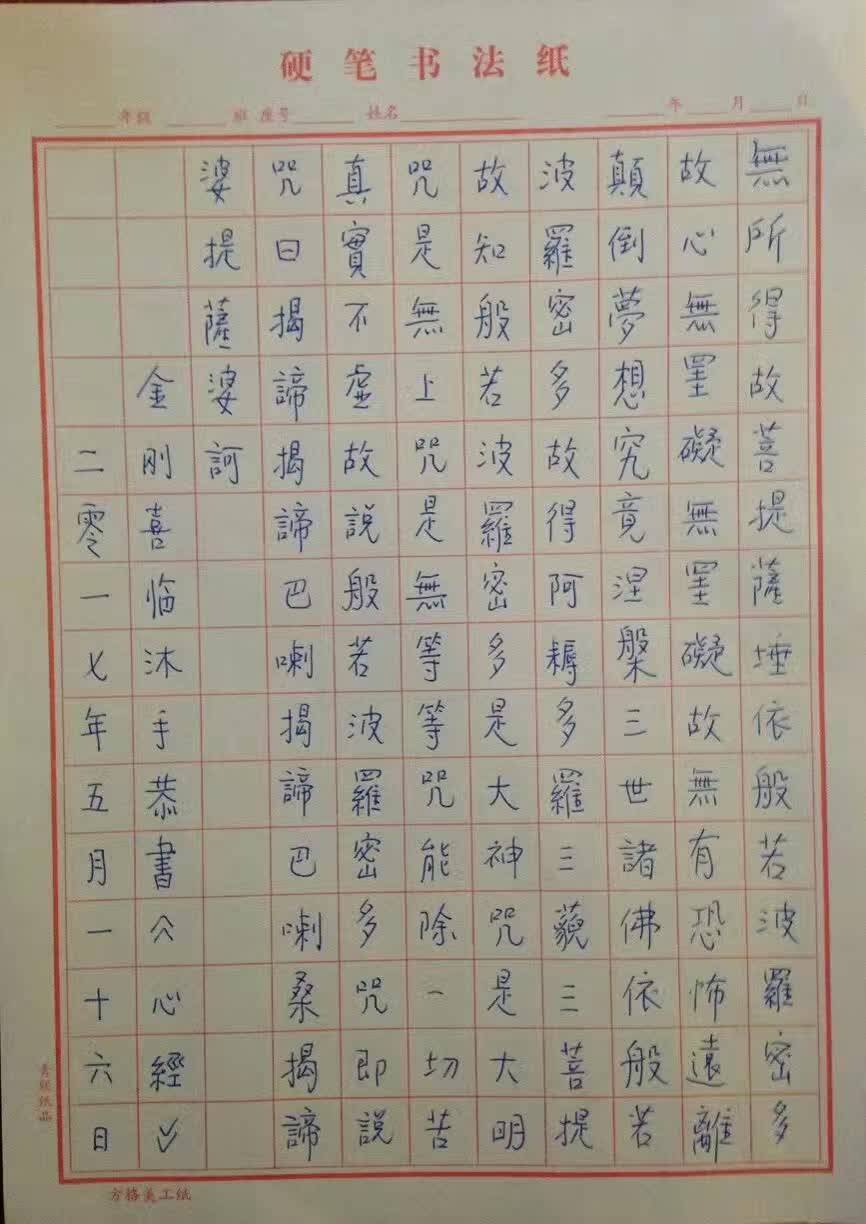 硬笔书法纸
年级 班 座号 姓名 年 月 日
無所得故菩提薩埵依般若波羅密多
故心無罣礙無罣礙故無有恐怖遠離
顛倒夢想究竟涅槃三世諸佛依般若
波羅密多故得阿耨多羅三藐三菩提
故知般若波羅密多是大神咒是大明
咒是無上咒是無等等咒能除一切苦
真實不虛故說般若波羅密多咒即説
咒曰揭諦揭諦巴喇揭諦巴喇桑揭諦
婆提薩婆訶
金刚喜临沐手恭書︿心經﹀
二零一七年五月一十六日
方格美工纸